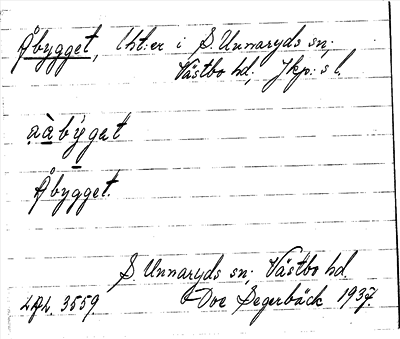 Åbygget, lht:er i S. Unnaryds sn;
Västbo hd; Jkp:s l.
aàbýgat
Åbygget.
S. Unnaryds sn; Västbo hd.
LAL. 3559. Doe Segerbäck 1937.